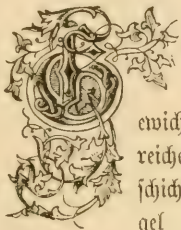 Gewich
reiche
ſchich
gel